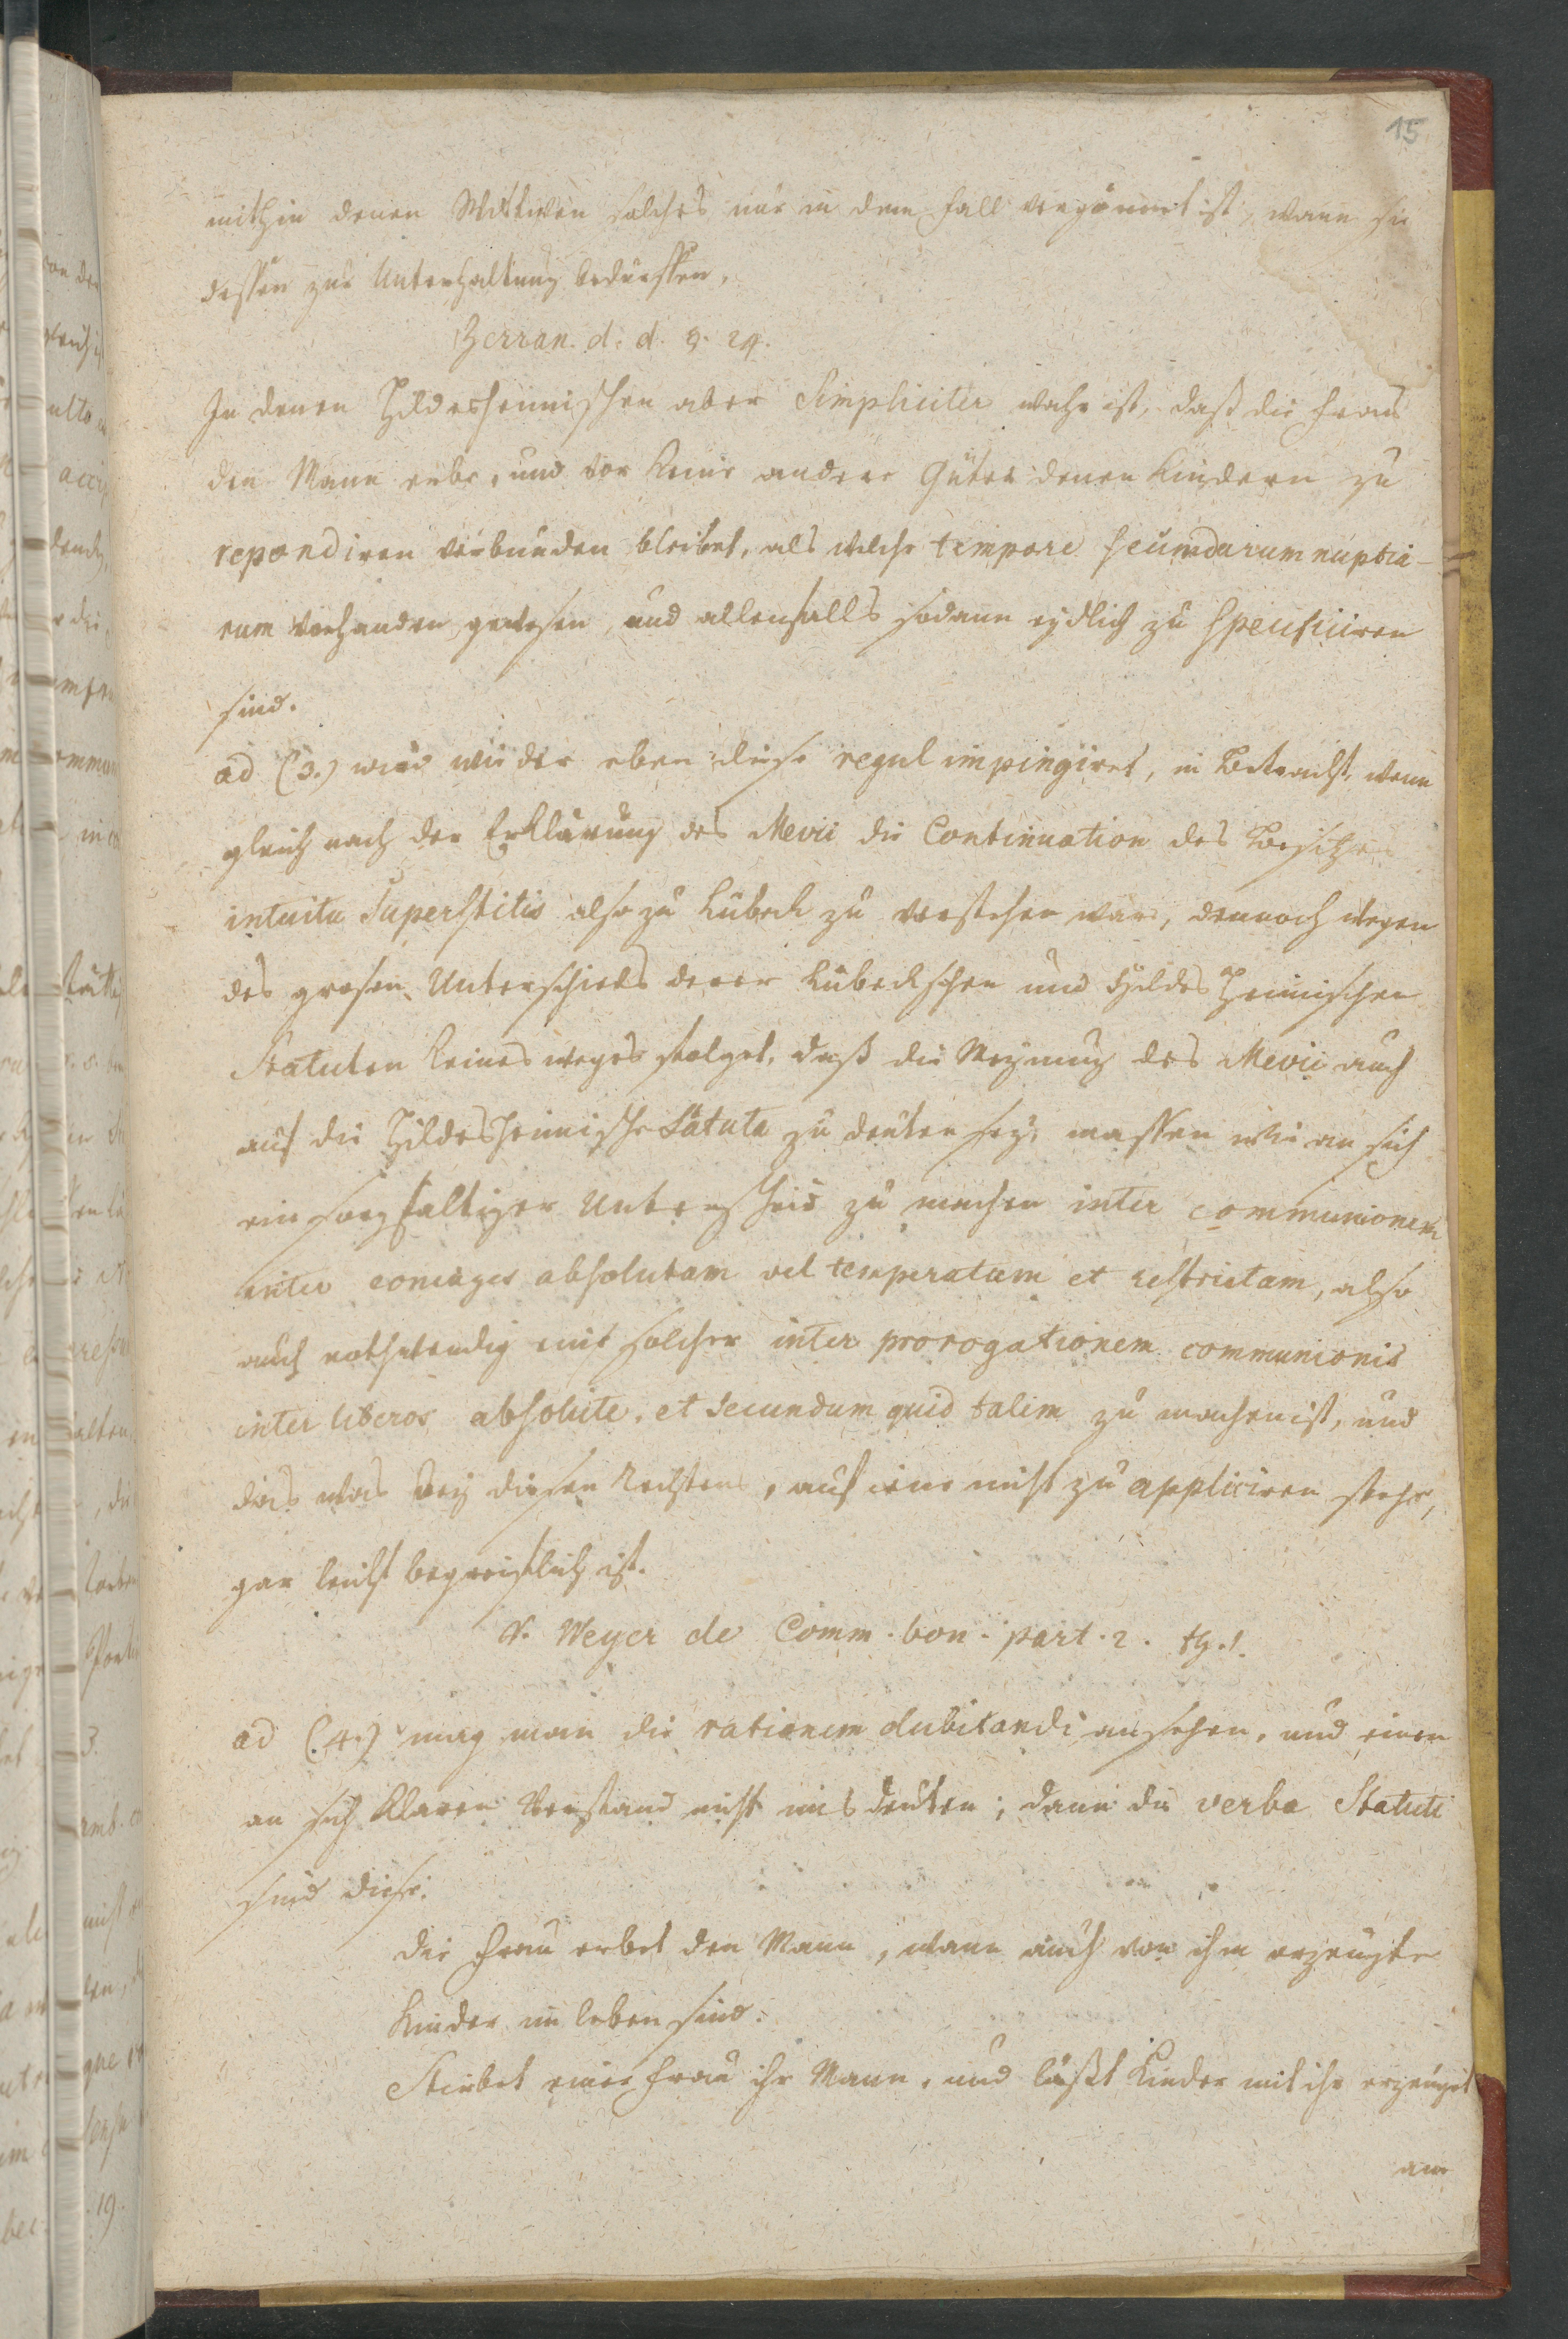 15
mithin denen Wittwen solches nur in dem Fall vergönnet ist, wann sie
dessen zur Unterhaltung bedürffen,
Zerran. d. d. §. 24.
In denen Hildesheimischen aber Simpliciter wahr ist, daß die Frau
den Mann erbe, und vor keine andere Güter denen Kindern zu
repondiren verbunden bleibet, als welche tempore secundarum nuptia-
rum vorhanden gewesen, und allenfalls sodann eydlich zu specificiren
sind.
ad (3.) wird wieder eben diese regul impingiret, in Betracht, wenn
gleich nach der Erklärung des Mevii die Continuation des Besitzes
intuitu Superstitis also zu Lübeck zu verstehen wäre, dennoch wegen
des grosen Unterschieds derer Lübeckschen und Hildesheimischen
Statuten keines weges folget, daß die Meynung des Mevii auch
auf die Hildesheimische Statuta zu deuten sey, massen wie an sich
ein sorgfaltiger Unterscheid zu machen inter communionem
inter coniuges absolutam vel temperatam et restrictam, also
auch nothwendig ein solcher inter prorogationem communionis
inter liberos absolute, et secundum quid talem zu machen ist, und
das was bey diesen Rechtens, auf jene nicht zu appliciren stehe,
gar leicht begreiflich ist.
v. Weyer de Comm. bon. part. 2. th. 1.
ad (4.) mag man die rationem dubitandi ansehen, und einen
an sich klaren Verstand nicht misdeuten; dann die verba Statuti
sind diese.
die Frau erbet den Mann, wann auch von ihm erzeugte
Kinder im leben sind.
Stirbet einer Frau ihr Mann, und läßt Kinder mit ihr erzeuget
am